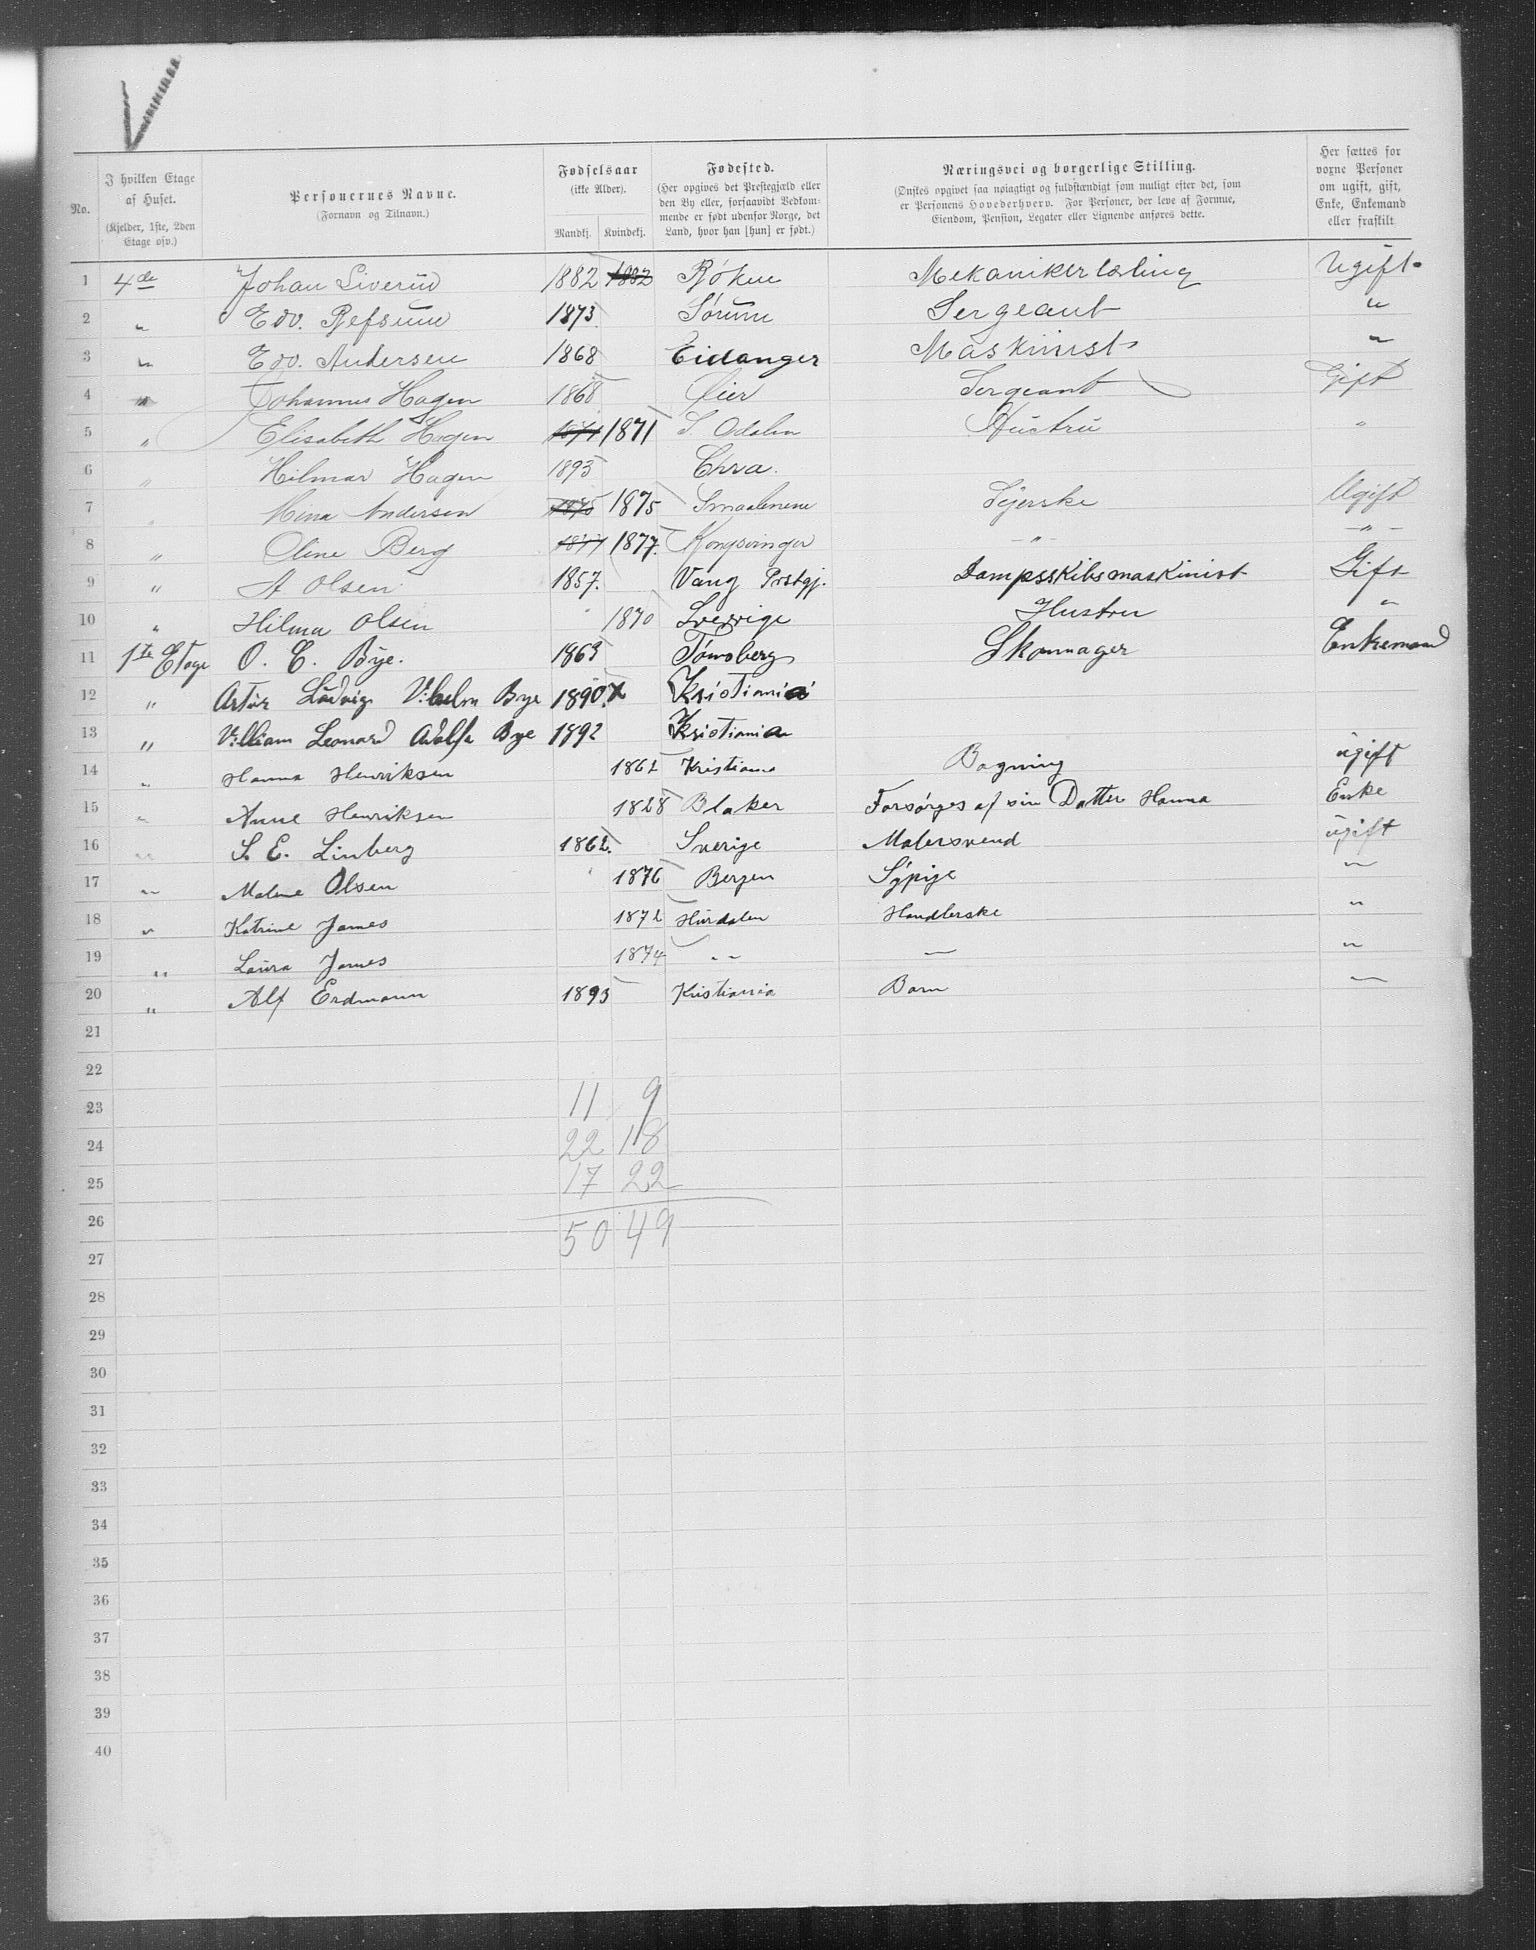 V
No.
I hvilken Etage af Huset. (Kjelder, 1ste, 2den Etage osv.)
Personernes Navne. (Fornavn og Tilnavn.)
Fødselsaar (ikke Alder). Mandkj. Kvindekj.
Fødested. (Her opgives det Prestegjæld eller den By eller, forsaavidt Vedkommende er født udenfor Norge, det Land, hvor han [hun] er født.)
Næringsvei og borgerlige Stilling. (Ønskes opgivet saa nøiagtigt og fuldstændigt som muligt efter det, som er Personens Hovederhverv. For Personer, der leve af Formue, Eiendom, Pension, Legater eller Lignende anføres dette.)
Her sættes for vorne Personer om ugift, gift, Enke, Enkemand eller fraskilt
1 4de Johan Siverin 1882 1882 Røken Mekanikerlærling Ugift
2 " Edv. Refsum 1873 Sørum Sergeant "
3 " Edv. Andersen 1868 Eidanger Maskinist "
4 " Johannes Hagen 1868 Øier Sergeant Gift
5 " Elisabeth Hagen 1871 1871 S. Odalen Hustru "
6 " Hilmar Hagen 1893 Chra.
7 " Mina Andersen 1875 1875 Smaalenene Syerske Ugift
8 " Oline Berg 1877 1877. Kongsvinger — " — — " —
9 " A Olsen 1857. Vang Prstgj. Dampsskibsmaskinist Gift
10 " Hilma Olsen 1870 Sverrige Hustru "
11 1ste Etage O. C. Bye. 1863 Tønsberg Skomager Enkemand
12 " Artur Ludvig Vilhelm Bye 1890. Kristiania
13 " Villiam Leonard Adolf Bye 1892 Kristiania
14 " Hanna Henriksen 1862 Kristiania Bagning ugift
15 " Anne Henriksen 1828 Blaker Forsørges af sin Datter Hanna Enke
16 " S. E. Linberg 1862. Sverige Malersvend ugift
17 " Malene Olsen 1876 Bergen Sypige "
18 " Katrine James 1872 Hurdalen Handlerske "
19 " Laura James 1874 " — "
20 " Alf Erdmann 1893 Kristiania Barn —
21
22
23 11 9
24 22 18
25 17 22
26 50 49
27
28
29
30
31
32
33
34
35
36
37
38
39
40